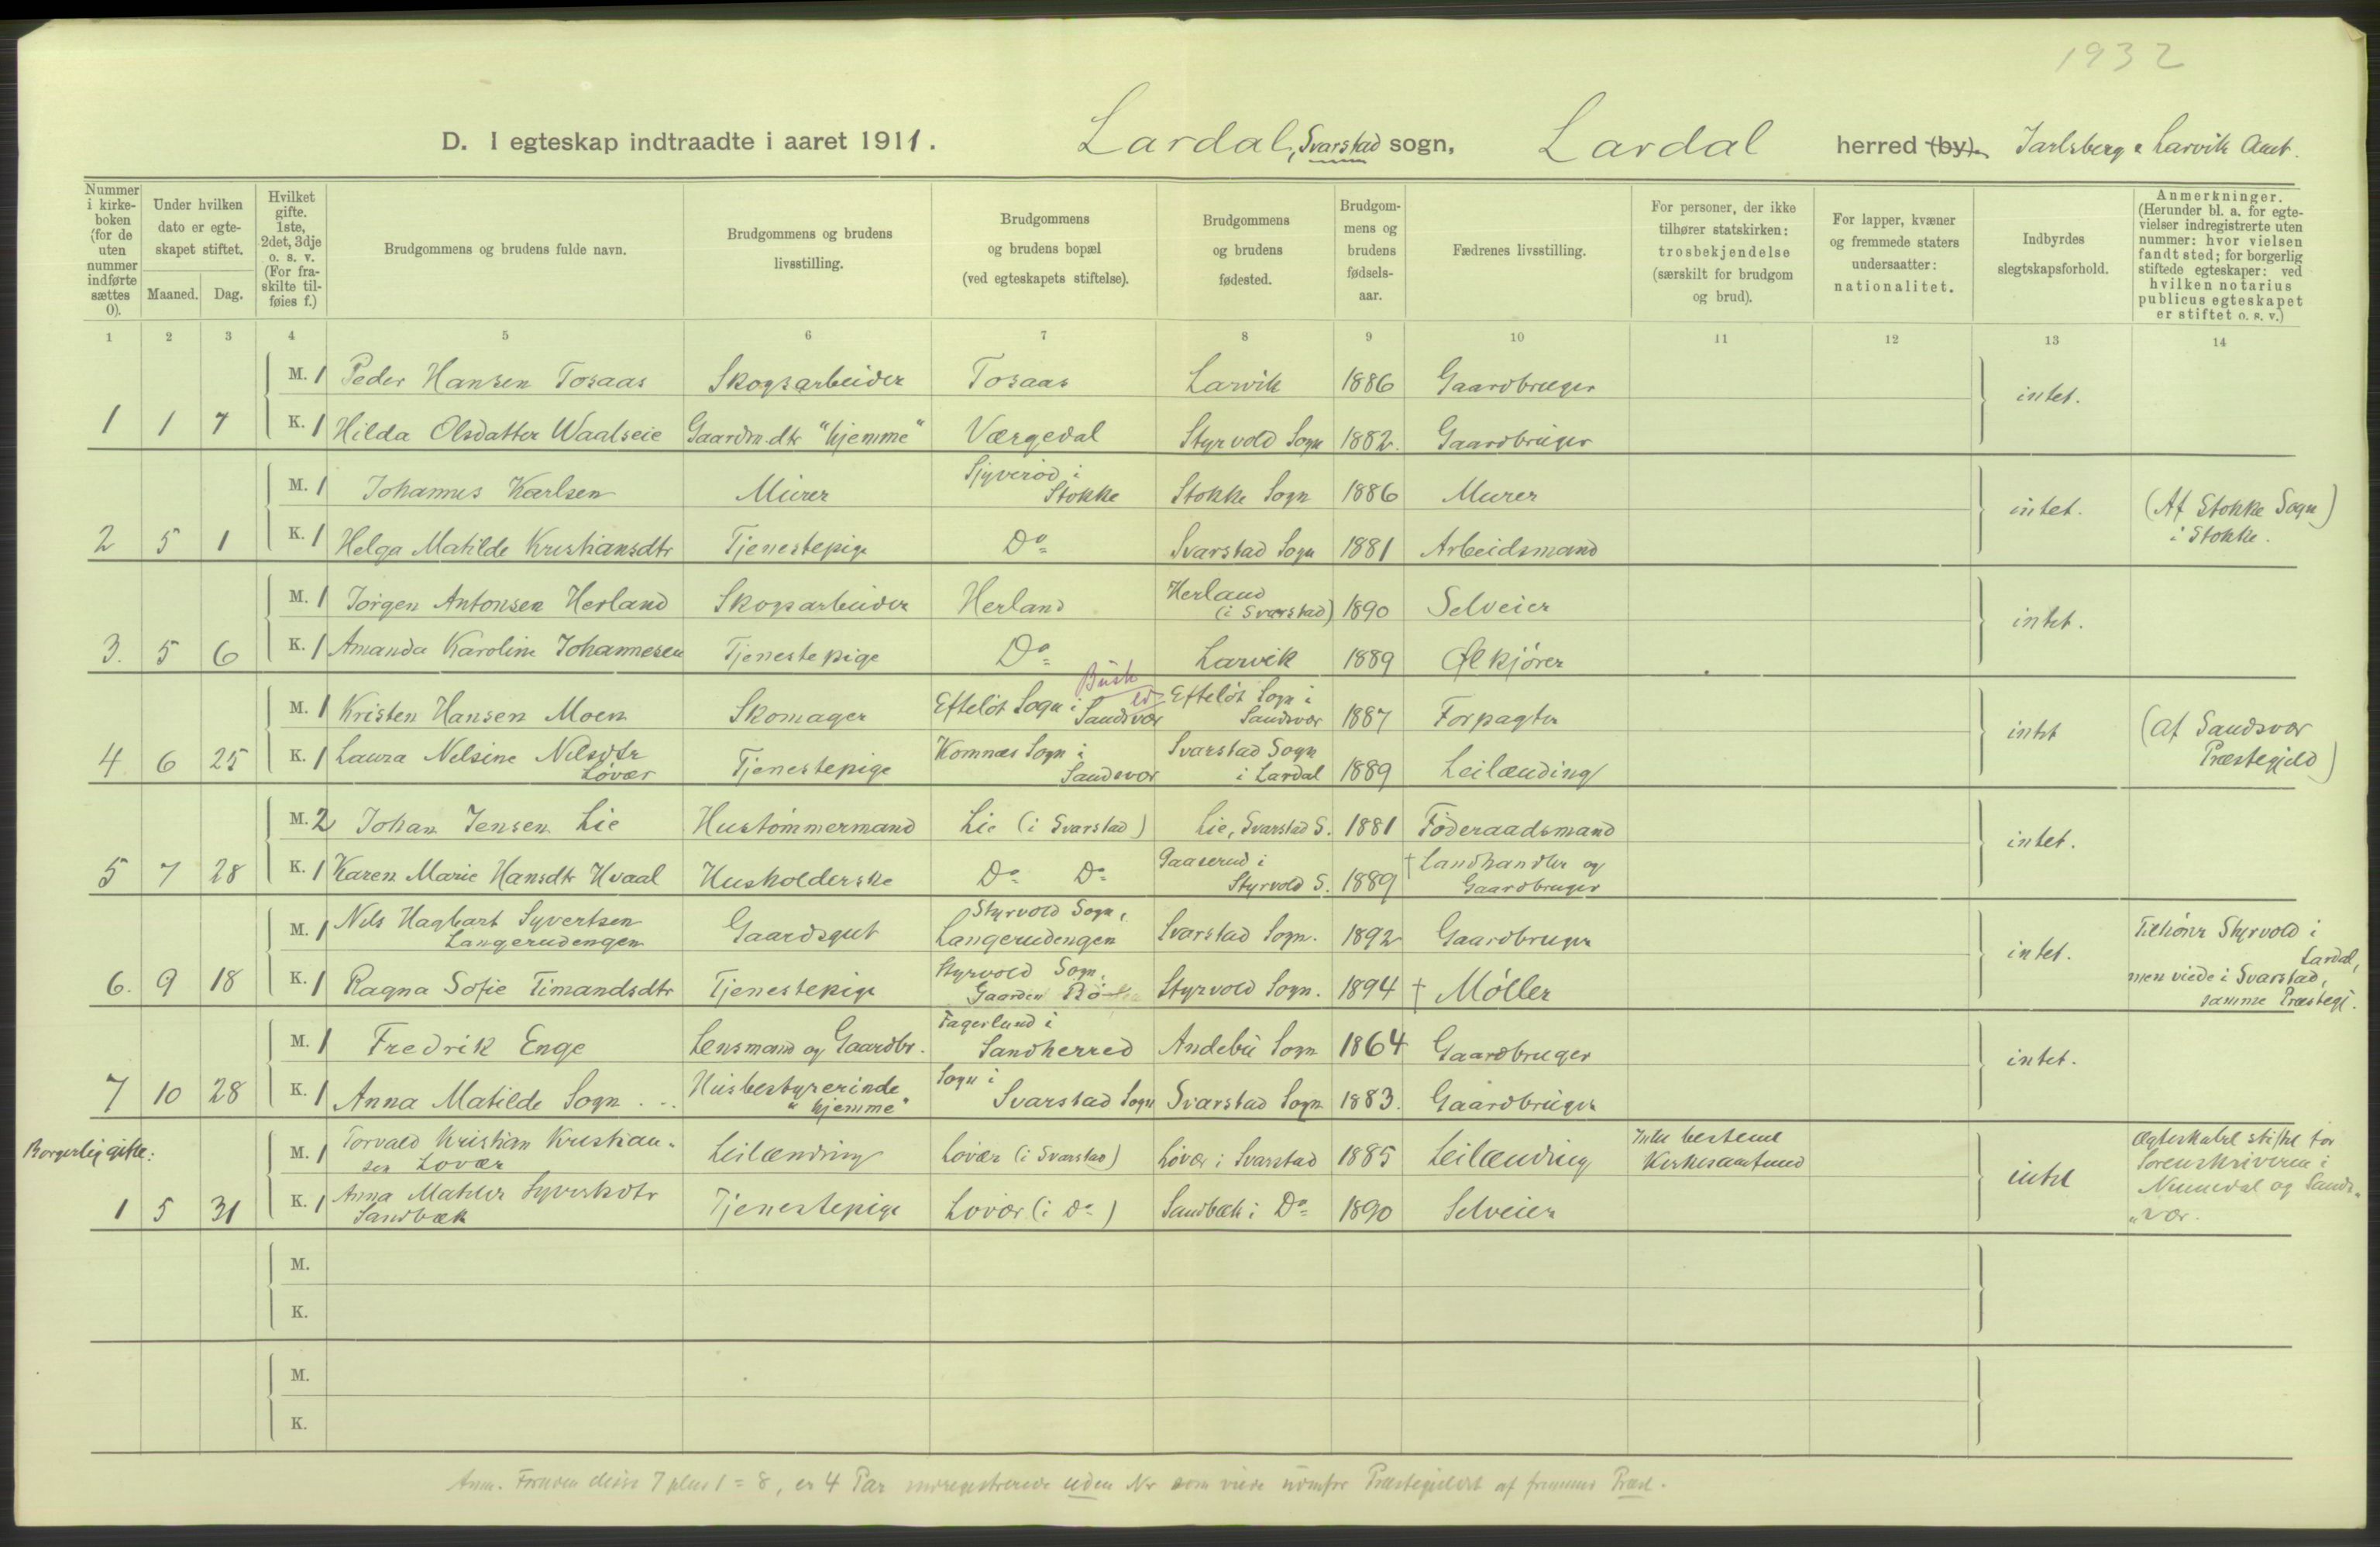 1932
D. I egteskap indtraadte i aaret 1911. Lardal, Svarstad sogn, Lardal herred (by). Jarlsberg & Larvik Amt.
Nummer i kirkeboken (for de uten nummer indførte sættes 0).
Under hvilken dato er egteskapet stiftet.
Maaned. Dag.
Hvilket gifte. 1ste, 2det, 3dje o. s. v. (For fraskilte tilføies f.)
Brudgommens og brudens fulde navn.
Brudgommens og brudens livsstilling.
Brudgommens og brudens bopæl (ved egteskapets stiftelse).
Brudgommens og brudens fødested.
Brudgommens og brudens fødselsaar.
Fædrenes livsstilling.
For personer, der ikke tilhører statskirken: trosbekjendelse (særskilt for brudgom og brud).
For lapper, kvæner og fremmede staters undersaatter: nationalitet.
Indbyrdes slegtskapsforhold.
Anmerkninger. (Herunder bl. a. for egtevielser indregistrerte uten nummer: hvor vielsen fandt sted; for borgerlig stiftede egteskaper: ved hvilken notarius publicus egteskapet er stiftet o. s. v.)
1 2 3 4 5 6 7 8 9 10 11 12 13 14
M. 1 Peder Hansen Tosaas Skogsarbeider Tosaas Larvik 1886 Gaardbruger intet.
1 1 7 K. 1 Hilda Olsdatter Waalseie Gaardm.dtr "hjemme" Værgedal Styrvold Sogn 1882. Gaardbruger
M. 1 Johannes Karlsen Murer Sjyverød i Stokke Stokke Sogn 1886 Murer intet. (Af Stokke Sogn i Stokke.)
2 5 1 K. 1 Helga Matilde Kristiansdtr Tjenestepige Do Svarstad Sogn 1881 Arbeidsmand
M. 1 Jörgen Antonsen Herland Skogsarbeider Herland Herland (i Svarstad) 1890 Selveier intet.
3. 5 6 K. 1 Amanda Karoline Johannesen Tjenestepige Do Larvik 1889 Ølkjörer
Busk
M. 1 Kristen Hansen Moen Skomager Efteløt Sogn i Sandsvær Efteløt Sogn i Sandsvær 1887 Forpagter intet (af Sandsvær Præstegjeld)
4 6 25 K. 1 Laura Nelsine Nilsdtr Løvær Tjenestepige Komnæs Sogn i Sandsvær Svarstad Sogn i Lardal 1889 Leilænding
M. 2 Johan Jensen Lie Hustømmermand Lie (i Svarstad) Lie, Svarstad S. 1881 Föderaadsmand intet.
5 7 28 K. 1 Karen Marie Hansdtr Hvaal Husholderske Do Do Gaaserud i Styrvold S. 1889 † Landhandler og Gaardbruger
M. 1 Nils Hagbart Syvertsen Langerudengen Gaardsgut Styrvold Sogn, Langerudengen Svarstad Sogn. 1892 Gaardbruger intet. Tilhörer Styrvold i Lardal, men viede i Svarstad, samme Præstegj.
6. 9 18 K. 1 Ragna Sofie Timandsdtr Tjenestepige Styrvold Sogn. Gaarden Styrvold Sogn. 1894 † Møller
M. 1 Fredrik Enge Lensmand og Gaardbr. Fagerlund i Sandherred Andebu Sogn 1864 Gaardbruger intet.
7 10 28 K. 1 Anna Matilde Sogn Husbestyrerinde "hjemme" Sogn i Svarstad Sogn Svarstad Sogn 1883. Gaardbruger
Borgerlig gifte:
M. 1 Torvald Kristian Kristiansen Lovær Leilænding Lovær (i Svarstad) Løvær i Svarstad 1885 Leilænding Intet bestemt Kirkesamfund intet Ægteskabet stiftet for Sorenskriveren i Numedal og Sandsvær.
1 5 31 K. 1 Anna Matilde Syvertsdtr Sandbæk Tjenestepige Lovær (i Do) Sandbæk i Do 1890 Selveier
M.
K.
M.
K.
Anm. Foruden disse 7 plus 1 = 8, er 4 Par indregistrerede uden Nr som viede udenfor Præstegjeldet af fremmed Præst.